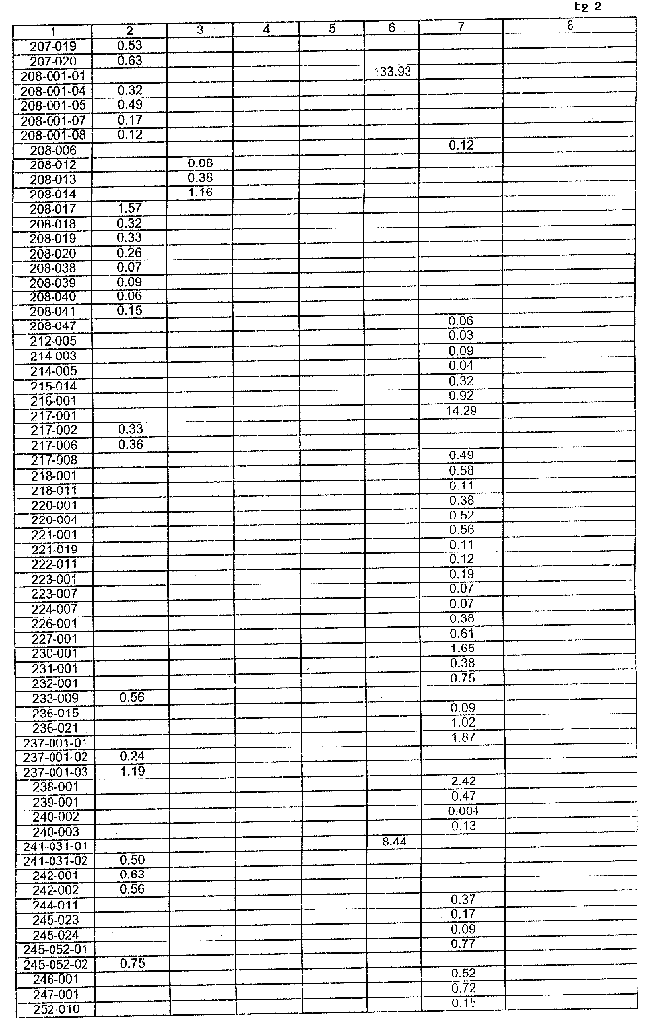 tg 2
1 2 3 4 5 6 7 8
207-019 0.53
207-020 0.63
208-001-01 133.93
208-001-04 0.32
208-001-05 0.49
208-001-07 0.17
208-001-08 0.12
208-006 0.12
208-012 0.08
208-013 0.38
208-014 1.16
208-017 1.57
208-018 0.32
208-019 0.33
208-020 0.26
208-038 0.07
208-039 0.09
208-040 0.06
208-041 0.15
208-047 0.06
212-005 0.03
214-003 0.09
214-005 0.04
215-014 0.32
216-001 0.92
217-001 14.29
217-002 0.33
217-006 0.36
217-008 0.49
218-001 0.58
218-011 0.11
220-001 0.38
220-004 0.52
221-001 0.56
221-019 0.11
222-011 0.12
223-001 0.19
223-007 0.07
224-007 0.07
226-001 0.38
227-001 0.61
230-001 1.65
231-001 0.38
232-001 0.75
233-009 0.56
236-015 0.09
236-021 1.02
237-001-01 1.87
237-001-02 0.24
237-001-03 1.19
238-001 2.42
239-001 0.47
240-002 0.004
240-003 0.13
241-031-01 8.44
241-031-02 0.50
242-001 0.63
242-002 0.56
244-011 0.37
245-023 0.17
245-024 0.09
245-052-01 0.77
245-052-02 0.75
246-001 0.52
247-001 0.72
252-010 0.15